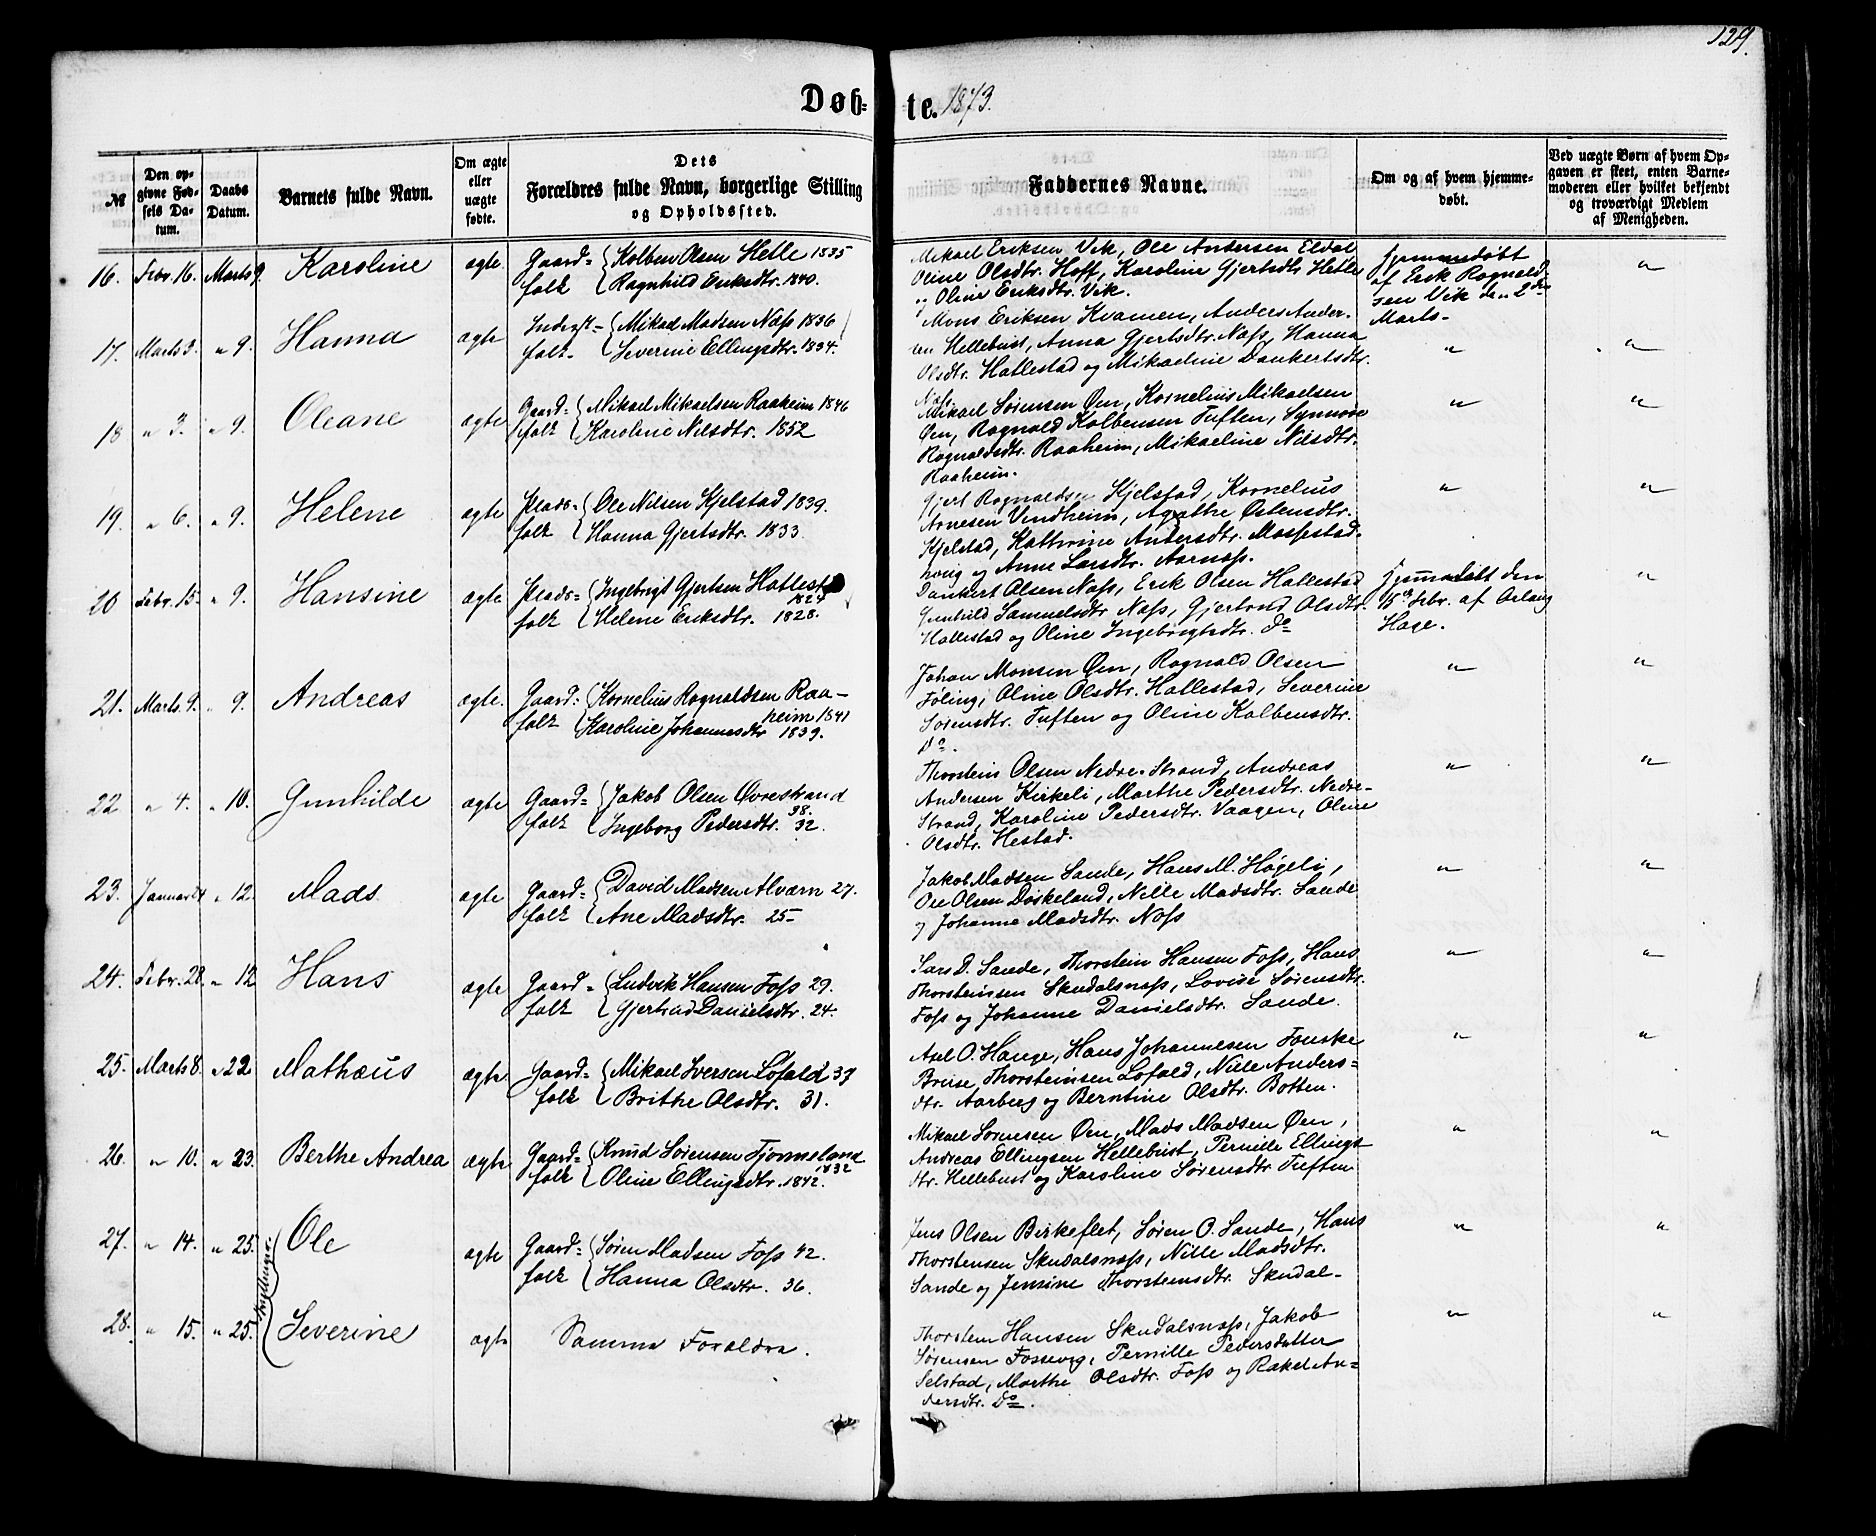 129.
Døb- te. 1873.
№
Den opgivne Fødsels Datum.
Daabs Datum.
Barnets fulde Navn.
Om ægte eller uægte fødte.
Dets Forældres fulde Navn, borgerlige Stilling og Opholdssted.
Faddernes Navne.
Om og af hvem hjemmedøbt.
Ved uægte Børn af hvem Opgaven er skeet, enten Barnemoderen eller hvilket bekjendt og troværdigt Medlem af Menigheden.
16. Febr. 16. Marts 9. Karoline ægte Gaard= {Kolben Olsen Helle 1835
folk {Ragnhild Eriksdtr. 1840.
Mikael Eriksen Vik, Ole Andersen Eldal
Oline Olsdtr. Hoff, Karoline Gjertsdtr. Helle
og Oline Eriksdtr. Vik.
Hjemmedøbt
af Erik Ragnald-
sen Vik den 2den
Marts. "
17. Marts 3. " 9. Hanna ægte Inderst- {Mikael Madsen Næss 1836
folk {Severine Ellingsdtr. 1834.
Mons Eriksen Kvamen, Anders Ander-
sen Hellebust, Anna Gjertsdtr. Næss, Hanna
Olsdtr. Hallestad og Mikaeline Dankertsdtr.
Næss " "
18 " 3. " 9. Oleane ægte Gaard= {Mikael Mikaelsen Raaheim 1846
folk {Karoline Nilsdtr. 1852
Mikael Sørensen Øen, Kornelius Mikaelsen
Øen, Ragnald Kolbensen Tuften, Synnøve
Ragnaldsdtr. Raaheim, Mikaeline Nilsdtr.
Raaheim. " "
19. " 6. " 9. Helene ægte Plads= {Ole Nilsen Kjelstad 1839.
folk {Hanna Gjertsdtr. 1833.
Gjert Ragnaldsen Kjelstad, Kornelius
Arnesen Vindheim, Agathe Østensdtr.
Kjelstad, Kathrine Andersdtr. Massestad-
houg og Anne Larsdtr. Aarnæss. " "
20 Febr. 15. " 9. Hansine ægte Plads= {Ingebrigt Gjertsen Hallest
1824
folk {Helene Eriksdtr. 1828.
Dankert Olsen Næss, Erik Olsen Hallestad
Gunhild Samuelsdtr Næss, Gjertrud Olsdtr.
Hallestad og Oline Ingebrigtsdtr. Do
Hjemmedøbt den
15de Febr. af Aslaug
Hage. "
21. Marts 9. " 9. Andreas ægte. Gaard= {Kornelius Ragnaldsen Raa-
heim 1841
folk {Karoline Johannesdtr 1839.
Johan Monsen Øen, Ragnald Olsen
Føling, Oline Olsdtr. Hallestad, Severine
Sørensdtr. Tuften og Oline Kolbensdtr.
Do. " "
22 " 4. " 10. Gunhilde ægte Gaard= {Jakob Olsen Øvrestrand
38.
folk {Ingeborg Pedersdtr. 32.
Thorstein Olsen Nedre-Strand, Andreas
Andersen Kirkeli, Marthe Pedersdtr. Nedre-
Strand, Karoline Pedersdtr. Vaagen, Oline
Olsdtr. Hestad. " "
23. Januar 24 " 12. Mads. ægte Gaard= {David Madsen Alværn 27.
folk {Ane Madsdtr. 25-
Jakob Madsen Sande, Hans M. Høgeli,
Ole Olsen Døskeland, Nille Madsdtr. Sande
og Johanne Madsdtr. Næss " "
24. Febr. 28. " 12 Hans ægte Gaard= {Ludvik Hansen Foss 29.
folk {Gjertrud Danielsdtr. 24.
Lars D. Sande, Thorstein Hansen Foss, Hans
Thorsteinsen Skudalsnæss, Lovise Sørensdtr.
Foss og Johanne Danielsdtr. Sande. " "
25. Marts 8. " 22 Mathæus ægte Gaard= {Mikael Iversen Lofald 37
folk {Brithe Olsdtr. 31.
Axel O. Hauge, Hans Johannesen Fonske
Breise Thorsteinsen Lofald, Nille Anders=
dtr. Aarberg og Berntine Olsdtr. Botten. " "
26. " 10. " 23. Berthe Andrea ægte Gaard= {Knud Sørensen Tjonneland
1832
folk {Oline Ellingsdtr. 1842.
Mikael Sørensen Øen, Mads Madsen Øen,
Andreas Ellingsen Hellebust, Pernille Ellings
dtr. Hellebust og Karoline Sørensdtr Tuften " "
27. " 14. " 25. Tvillinger. Ole ægte Gaard= {Søren Madsen Foss 42.
folk {Hanna Olsdtr. 36.
Jens Olsen Birkeflet, Søren O. Sande, Hans
Thorstensen Skudalsnæss, Nille Madsdtr.
Sande og Jensine Thorsteinsdtr. Skudal- " "
28. " 15. " 25. Severine ægte Samme Forældre.
Thorstein Hansen Skudalsnæss, Jakob
Sørensen Fossevig, Pernille Pedersdatter
Selstad, Marthe Olsdtr. Foss og Rakel An=
dersdtr. Do. " "